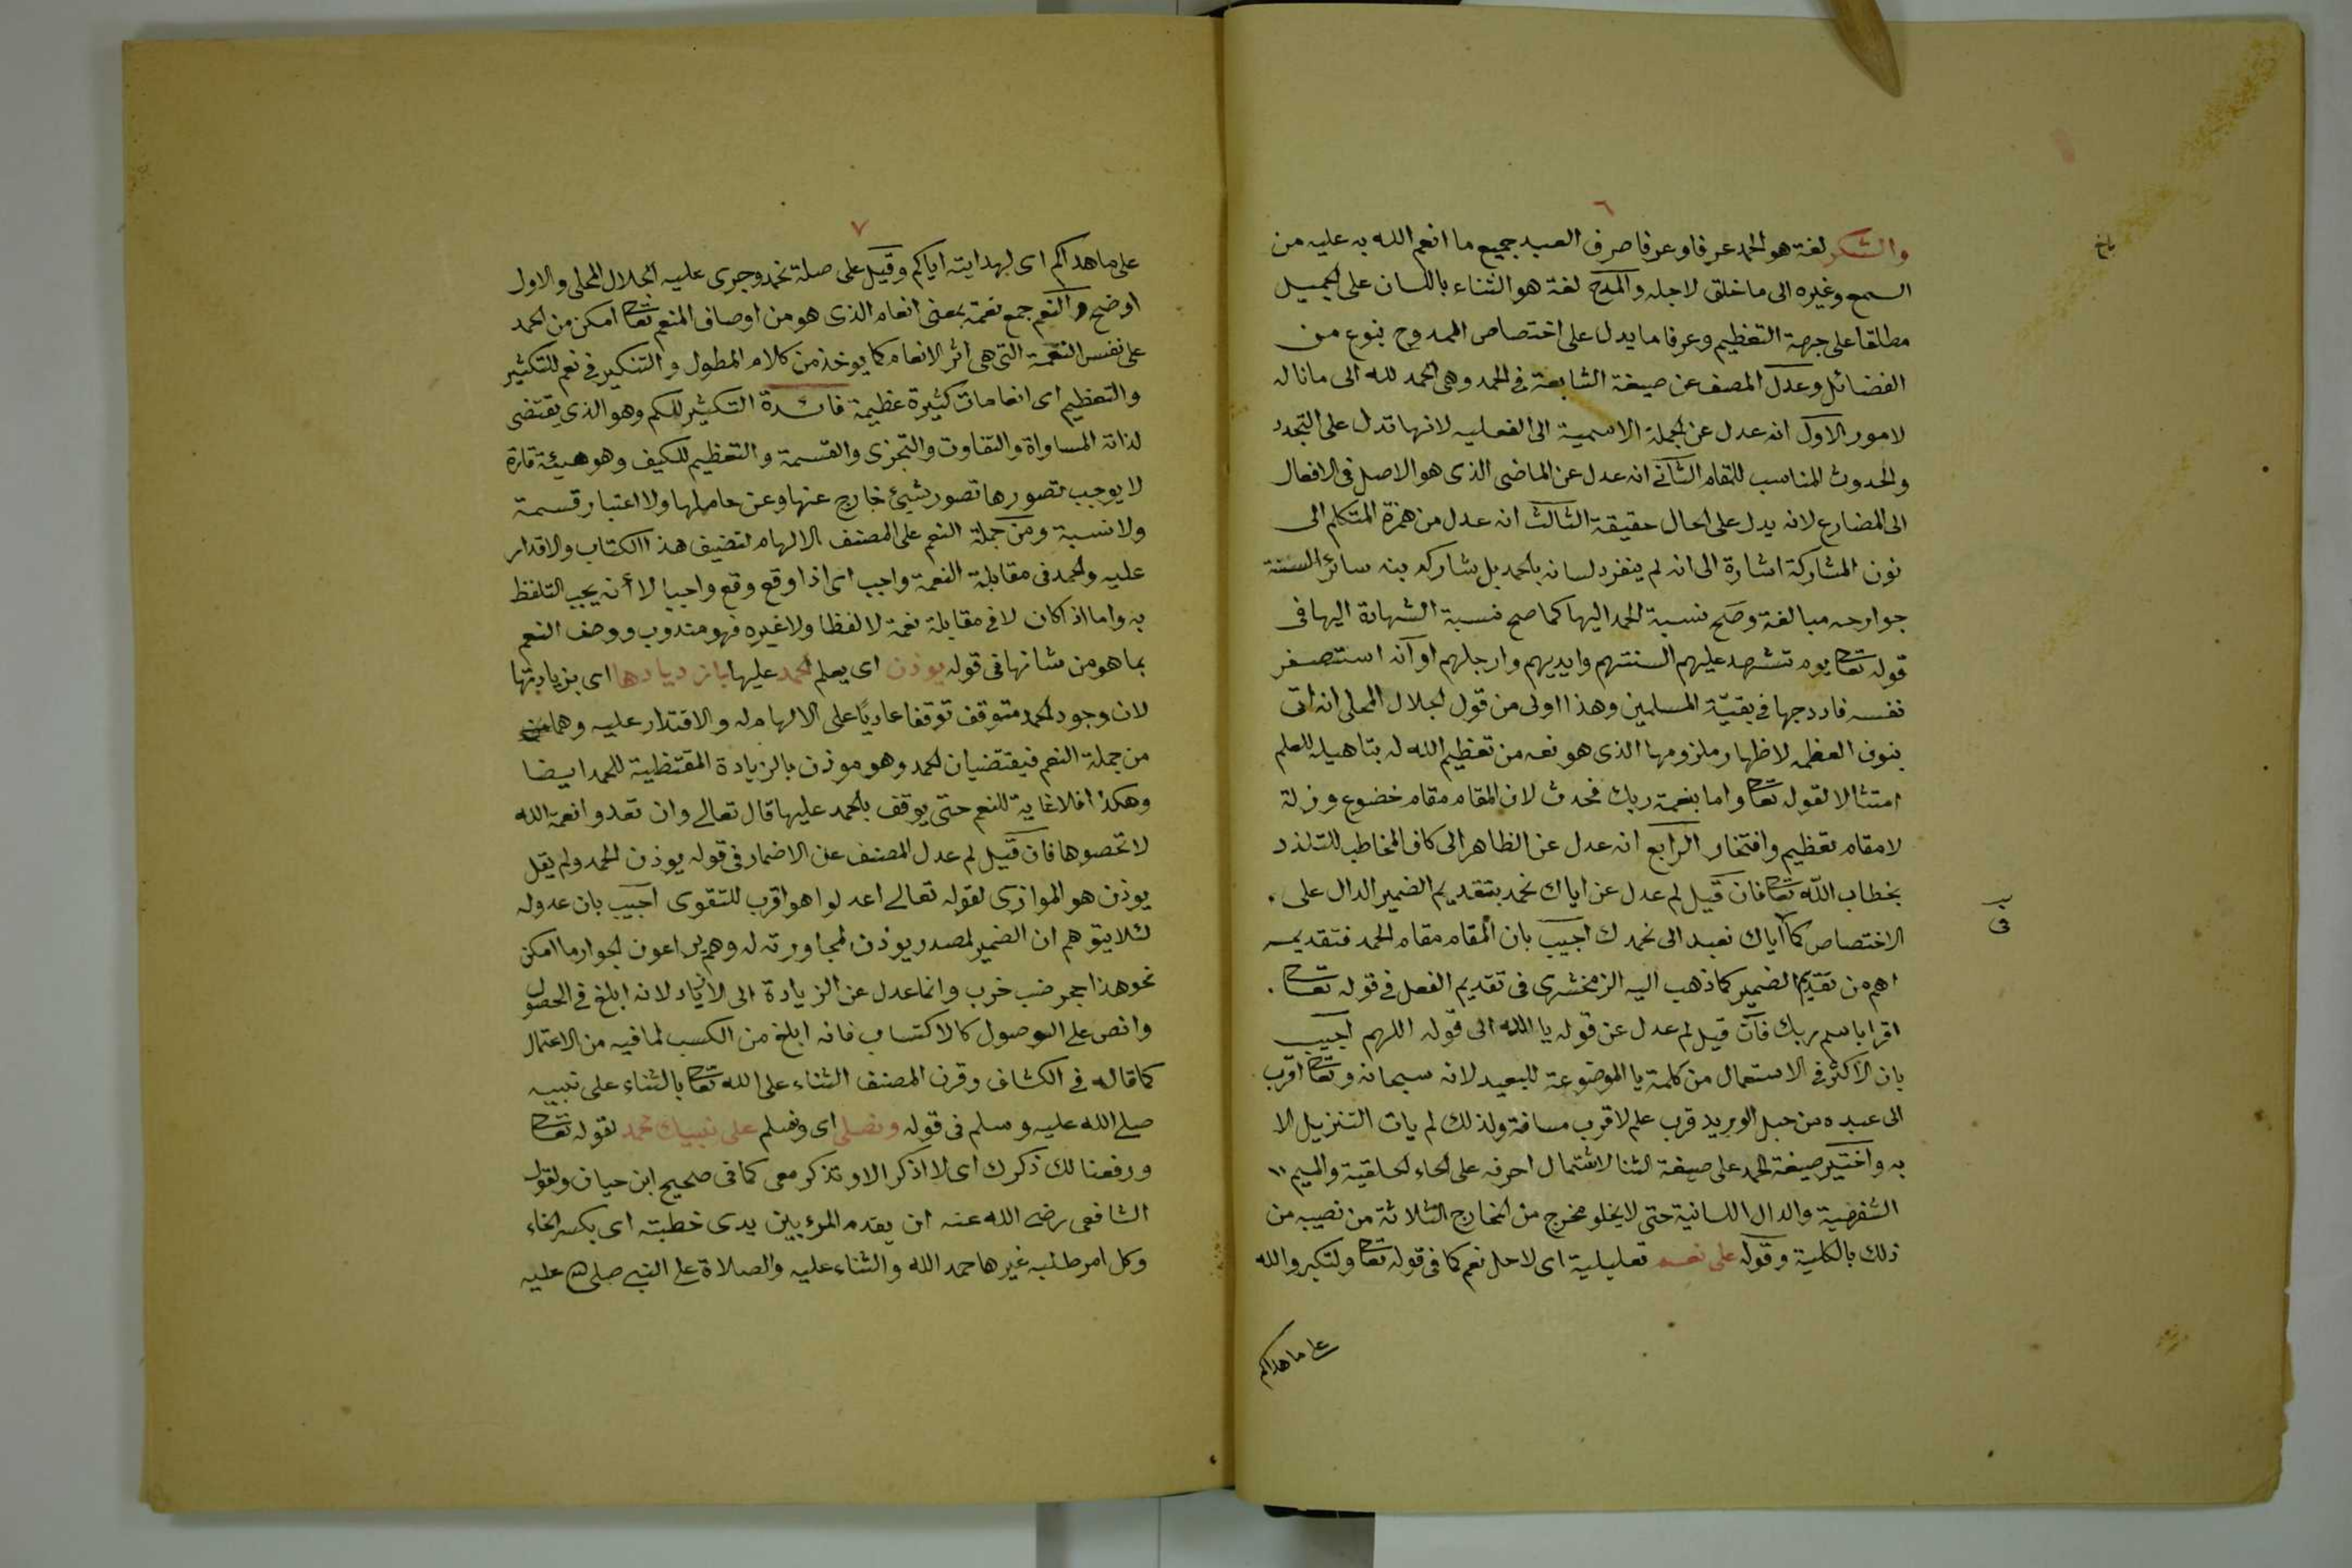 ٦
والشكر لغة هو الحمد عرفا وعرفا صرف العبد جميع ما انعم الله به عليه من
السمع وغيره الى ما خلق لاجله والمدح لغة هو الثناء باللسان على الجميل
مطلقا على جهة التعظيم وعرفا ما يدل على اختصاص الممدوح بنوع من
الفضائل وعدل المصنف عن صيغة الشايعة في الحمد وهى الحمد لله الى ما ناله
لامور الاول انه عدل عن الجملة الاسمية الى الفعليه لانها تدل على التجدد
والحدوث المناسب للمقام الثاني انه عدل عن الماضى الذى هو الاصل في الافعال
الى المضارع لانه يدل على الحال حقيقة الثالث انه عدل من همزة المتكلم الى
نون المشاركة اشارة الى انه لم ينفرد لسانه بالحمد بل شاركه بنه سائر السنة
جوارحه مبالغة وصح نسبة الحمد اليها كما صح نسبة الشهادة اليها في
قوله تعالى يوم تشهد عليهم السنتهم وايديهم وارجلهم او انه استصغر
نفسه فادرجها في بقية المسلمين وهذا اولى من قول الجلال المحلى انه اتى
بنون العظمه لاظهار ملزومها الذى هو نعمه من تعظيم الله له بتاهيله للعلم
امتثالا لقوله تعالى واما بنعمة ربك فحدث لان المقام مقام خضوع وزلة
لا مقام تعظيم وافتخار الرابع انه عدل عن الظاهر الى كاف المخاطب للتلذذ
بخطاب الله تعالى فان قيل لم عدل عن اياك نحمد بتقديم الضمير الدال على
الاختصاص كما اياك نعبد الى نحمدك اجيب بان المقام مقام الحمد فتقديمه
اهم من تقديم الضمير كما ذهب اليه الزمخشرى في تقديم الفعل في قوله تعالى
اقرا باسم ربك فان قيل لم عدل عن قوله يا الله الى قوله اللهم اجيب
بان الاكثر في الاستعمال من كلمة يا الموضوعة للبعيد لانه سبحانه وتعالى اقرب
الى عبده من حبل الوريد قرب علم لا قرب مسافة ولذلك لم يات التنزيل الا
به واختير صيغة الحمد على صيغة الثنا لاشتمال احرفه على الحاء الحلقية والميم
الشفهية والدال اللسانية حتى لا يخلو مخرج من المخارج الثلاثة من نصيبه من
ذلك بالكلية وقوله على نعم تعليلية اى لاجل نعم كما في قوله تعالى ولتكبروا الله
على ما هداكم
٧
على ما هداكم اى لهدايته اياكم وقيل على صلة نحمد وجرى عليه الجلال المحلى والاول
اوضح والنعم جمع نعمة بمعنى انعام الذى هو من اوصاف المنعم تعالى امكن من الحمد
على نفس النعمة التى هى اثر الانعام كما يوخذ من كلام المطول والتنكير في نعم للتكثير
والتعظيم اى انعامات كثيرة عظيمة فائدة التكثير للكم وهو الذى يقتضى
لذاته المساواة والتفاوت والتجزى والقسمة والتعظيم للكيف وهو هيئة قارة
لا يوجب تصورها تصور شيئ خارج عنها وعن حاملها ولا اعتبار قسمة
ولا نسبة ومن جملة النعم على المصنف الالهام لتصنيف هذا الكتاب والاقدار
عليه والحمد في مقابلة النعمة واجب اى اذا وقع وقع واجبا لا أنه يجب التلفظ
به واما اذا كان لا في مقابلة نعمة لا لفظا ولا غيره فهو مندوب ووصف النعم
بما هو من شانها في قوله يوذن اى يعلم الحمد عليها بازديادها اى بزيادتها
لان وجود الحمد متوقف توقفا عاديًا على الالهام له والاقتدار عليه وهما
من جملة النعم فيقتضيان الحمد وهو موذن بالزيادة المقتظية للحمد ايضا
وهكذا فلا غاية للنعم حتى يوقف بالحمد عليها قال تعالى وان تعدوا نعمة الله
لا تحصوها فان قيل لم عدل المصنف عن الاضمار في قوله يوذن الحمد ولم يقل
يوذن هو الموازى لقوله تعالى اعدلوا هو اقرب للتقوى اجيب بان عدوله
لئلا يتوهم ان الضمير لمصدر يوذن لمجاورته له وهم يراعون الجوار ما امكن
نحو هذا حجر ضب خرب وانما عدل عن الزيادة الى الازدياد لانه ابلغ في الحصول
وانص على الوصول كالاكتساب فانه ابلغ من الكسب لما فيه من الاعتمال
كما قاله في الكشاف وقرن المصنف الثناء على الله تعالى بالثناء على نبيه
صلى الله عليه وسلم في قوله ونصلى اى ونسلم على نبيك محمد لقوله تعالى
ورفعنا لك ذكرك اى لا اذكر الا وتذكر معى كما في صحيح ابن حبان ولقول
الشافعى رضى الله عنه ان يقدم المرء بين يدى خطبته اى بكسر الخاء
وكل امر طلبه غيرها حمد الله والثناء عليه والصلاة على النبى صلى الله عليه